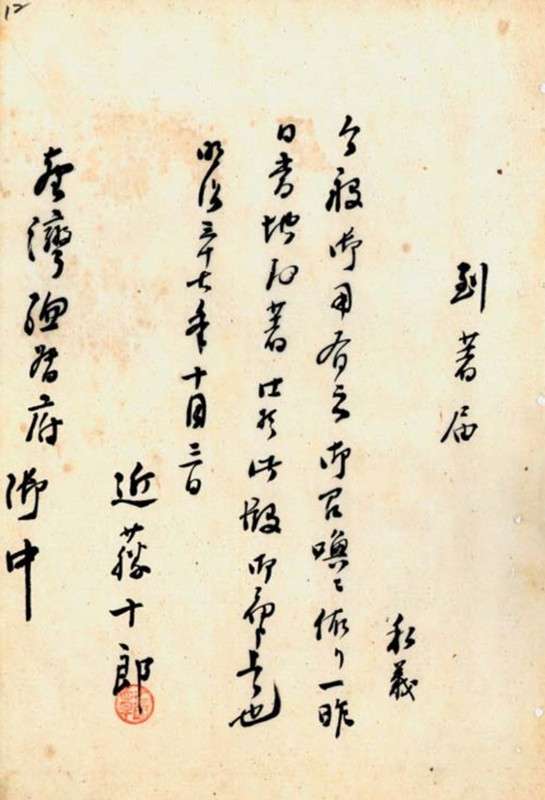 12
到著届
私義
今般御用有之御召喚ニ依リ一昨
日當地到著仕候此段御也
明治三十七年十月三日
近藤十郎
臺灣總督府御中